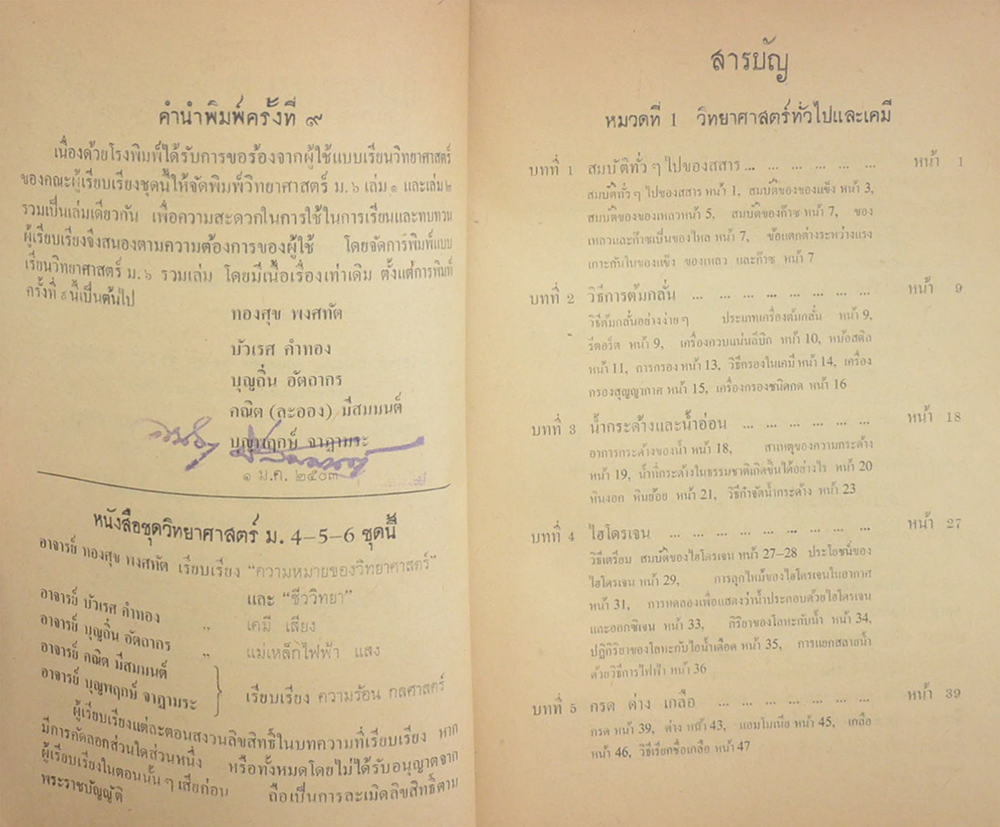 คำนำพิมพ์ครั้งที่ ๙
เนื่องด้วยโรงพิมพ์ได้รับการขอร้องจากผู้ใช้แบบเรียนวิทยาศาสตร์
ของคณะผู้เรียบเรียงชุดนี้ให้จัดพิมพ์วิทยาศาสตร์ ม. ๖ เล่ม ๑ และเล่ม ๒
รวมเป็นเล่มเดียวกัน เพื่อความสะดวกในการใช้ในการเรียนและทบทวน
ผู้เรียบเรียงจึงสนองตามความต้องการของผู้ใช้ โดยจัดการพิมพ์แบบ
เรียนวิทยาศาสตร์ ม. ๖ รวมเล่ม โดยมีเนื้อเรื่องเท่าเดิม ตั้งแต่การพิมพ์
ครั้งที่ ๙ นี้เป็นต้นไป
ทองศุข พงศทัต
บัวเรศ คำทอง
บุญถิ่น อัตถากร
คณิต (ละออง) มีสมมนต์
บุญพฤกษ์ จาฏามระ
๑ ม.ค. ๒๕๐๓
หนังสือชุดวิทยาศาสตร์ ม. 4-5-6 ชุดนี้
อาจารย์ ทองศุข พงศทัต เรียบเรียง "ความหมายของวิทยาศาสตร์"
และ "ชีววิทยา"
อาจารย์ บัวเรศ คำทอง " เคมี เสียง
อาจารย์ บุญถิ่น อัตถากร " แม่เหล็กไฟฟ้า แสง
อาจารย์ คณิต มีสมมนต์
อาจารย์ บุญพฤกษ์ จาฏามระ } เรียบเรียง ความร้อน กลศาสตร์
ผู้เรียบเรียงแต่ละตอนสงวนลิขสิทธิ์ในบทความที่เรียบเรียง หาก
มีการคัดลอกส่วนใดส่วนหนึ่ง หรือทั้งหมดโดยไม่ได้รับอนุญาตจาก
ผู้เรียบเรียงในตอนนั้น ๆ เสียก่อน ถือเป็นการละเมิดลิขสิทธิ์ตาม
พระราชบัญญัติ
สารบัญ
หมวดที่ 1 วิทยาศาสตร์ทั่วไปและเคมี
บทที่ 1 สมบัติทั่ว ๆ ไปของสสาร ... ... ... ... ... ... หน้า 1
สมบัติทั่ว ๆ ไปของสสาร หน้า 1, สมบัติของของแข็ง หน้า 3,
สมบัติของของเหลวหน้า 5, สมบัติของก๊าซ หน้า 7, ของ
เหลวและก๊าซเป็นของไหล หน้า 7, ข้อแตกต่างระหว่างแรง
เกาะกันในของแข็ง ของเหลว และก๊าซ หน้า 7
บทที่ 2 วิธีการต้มกลั่น ... ... ... ... ... ... ... หน้า 9
วิธีต้มกลั่นอย่างง่าย ๆ ประเภทเครื่องต้มกลั่น หน้า 9,
รีตอร์ต หน้า 9, เครื่องควบแน่นลีบิก หน้า 10, หม้อสติล
หน้า 11, การกรอง หน้า 13, วิธีกรองในเคมี หน้า 14, เครื่อง
กรองสุญญากาศ หน้า 15, เครื่องกรองชนิดกด หน้า 16
บทที่ 3 น้ำกระด้างและน้ำอ่อน ... ... ... ... ... ... หน้า 18
อาการกระด้างของน้ำ หน้า 18, สาเหตุของความกระด้าง
หน้า 19, น้ำที่กระด้างในธรรมชาติเกิดขึ้นได้อย่างไร หน้า 20
หินงอก หินย้อย หน้า 21, วิธีกำจัดน้ำกระด้าง หน้า 23
บทที่ 4 ไฮโดรเจน ... ... ... ... ... ... ... ... หน้า 27
วิธีเตรียม สมบัติของไฮโดรเจน หน้า 27-28 ประโยชน์ของ
ไฮโดรเจน หน้า 29, การลุกไหม้ของไฮโดรเจนในอากาศ
หน้า 31, การทดลองเพื่อแสดงว่าน้ำประกอบด้วยไฮโดรเจน
และออกซิเจน หน้า 33, กิริยาของโลหะกับน้ำ หน้า 34,
ปฏิกิริยาของโลหะกับไอน้ำเดือด หน้า 35, การแยกสลายน้ำ
ด้วยวิธีการไฟฟ้า หน้า 36
บทที่ 5 กรด ด่าง เกลือ ... ... ... ... ... ... หน้า 39
กรด หน้า 39, ด่าง หน้า 43, แอมโมเนีย หน้า 45, เกลือ
หน้า 46, วิธีเรียกชื่อเกลือ หน้า 47